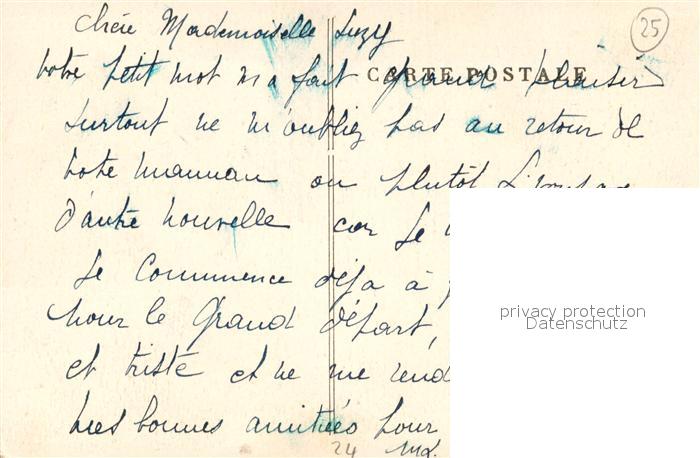 25
Chère Mademoiselle Suzy
CARTE POSTALE
votre petit mot m'a fait grand plaisir
surtout ne m'oubliez pas au retour de
votre mamman ou plutôt
d'autre nouvelle car je
Je commence déja à
pour le Grand départ,
et triste et ne me rend
mes bonnes amitiés pour
24
privacy protection
Datenschutz